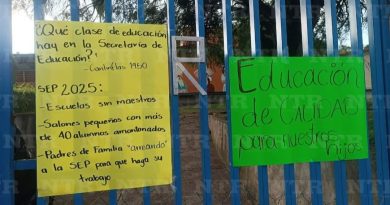 ¿Qué clase de educación
hay en la Secretaría de
Educación?
- Cantinflas 1950
SEP 2025:
- Escuelas sin maestros
- Salones pequeños con más
de 40 alumnos amontonados
- Padres de Familia "arreando"
a la SEP para que haga su
trabajo
Educación
de CALIDAD
para nuestros
hijos
NTR